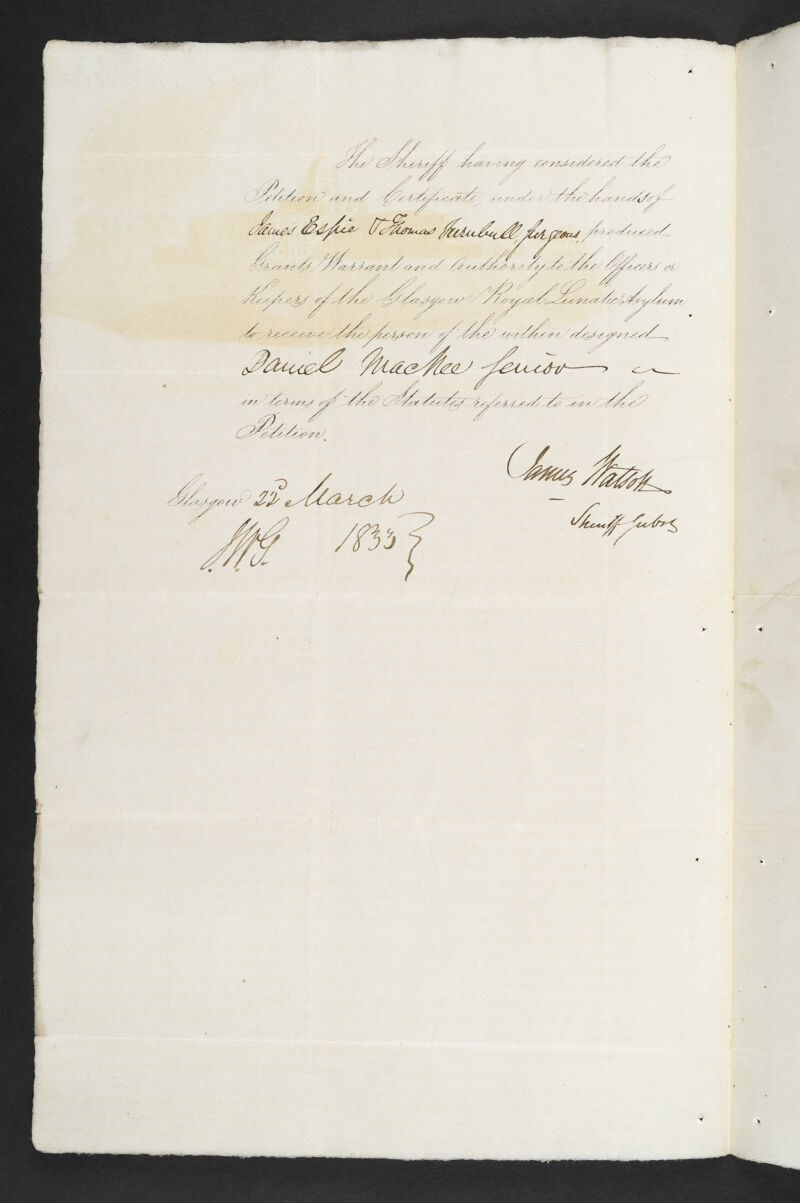 The Sheriff having considered the
Petition and Certificate, under the hands of
James Espie & Thomas Turnbull, Surgeons, produced
Grants Warrant and Authority to the Officers or
Keepers of the Glasgow Royal Lunatic Asylum
to receive the person of the within designed
Daniel MacKee Senior
in terms of the Statutes referred to in the
Petition.
James Watson
Sheriff Subst
Glasgow 22d March
J.W.G. 1833